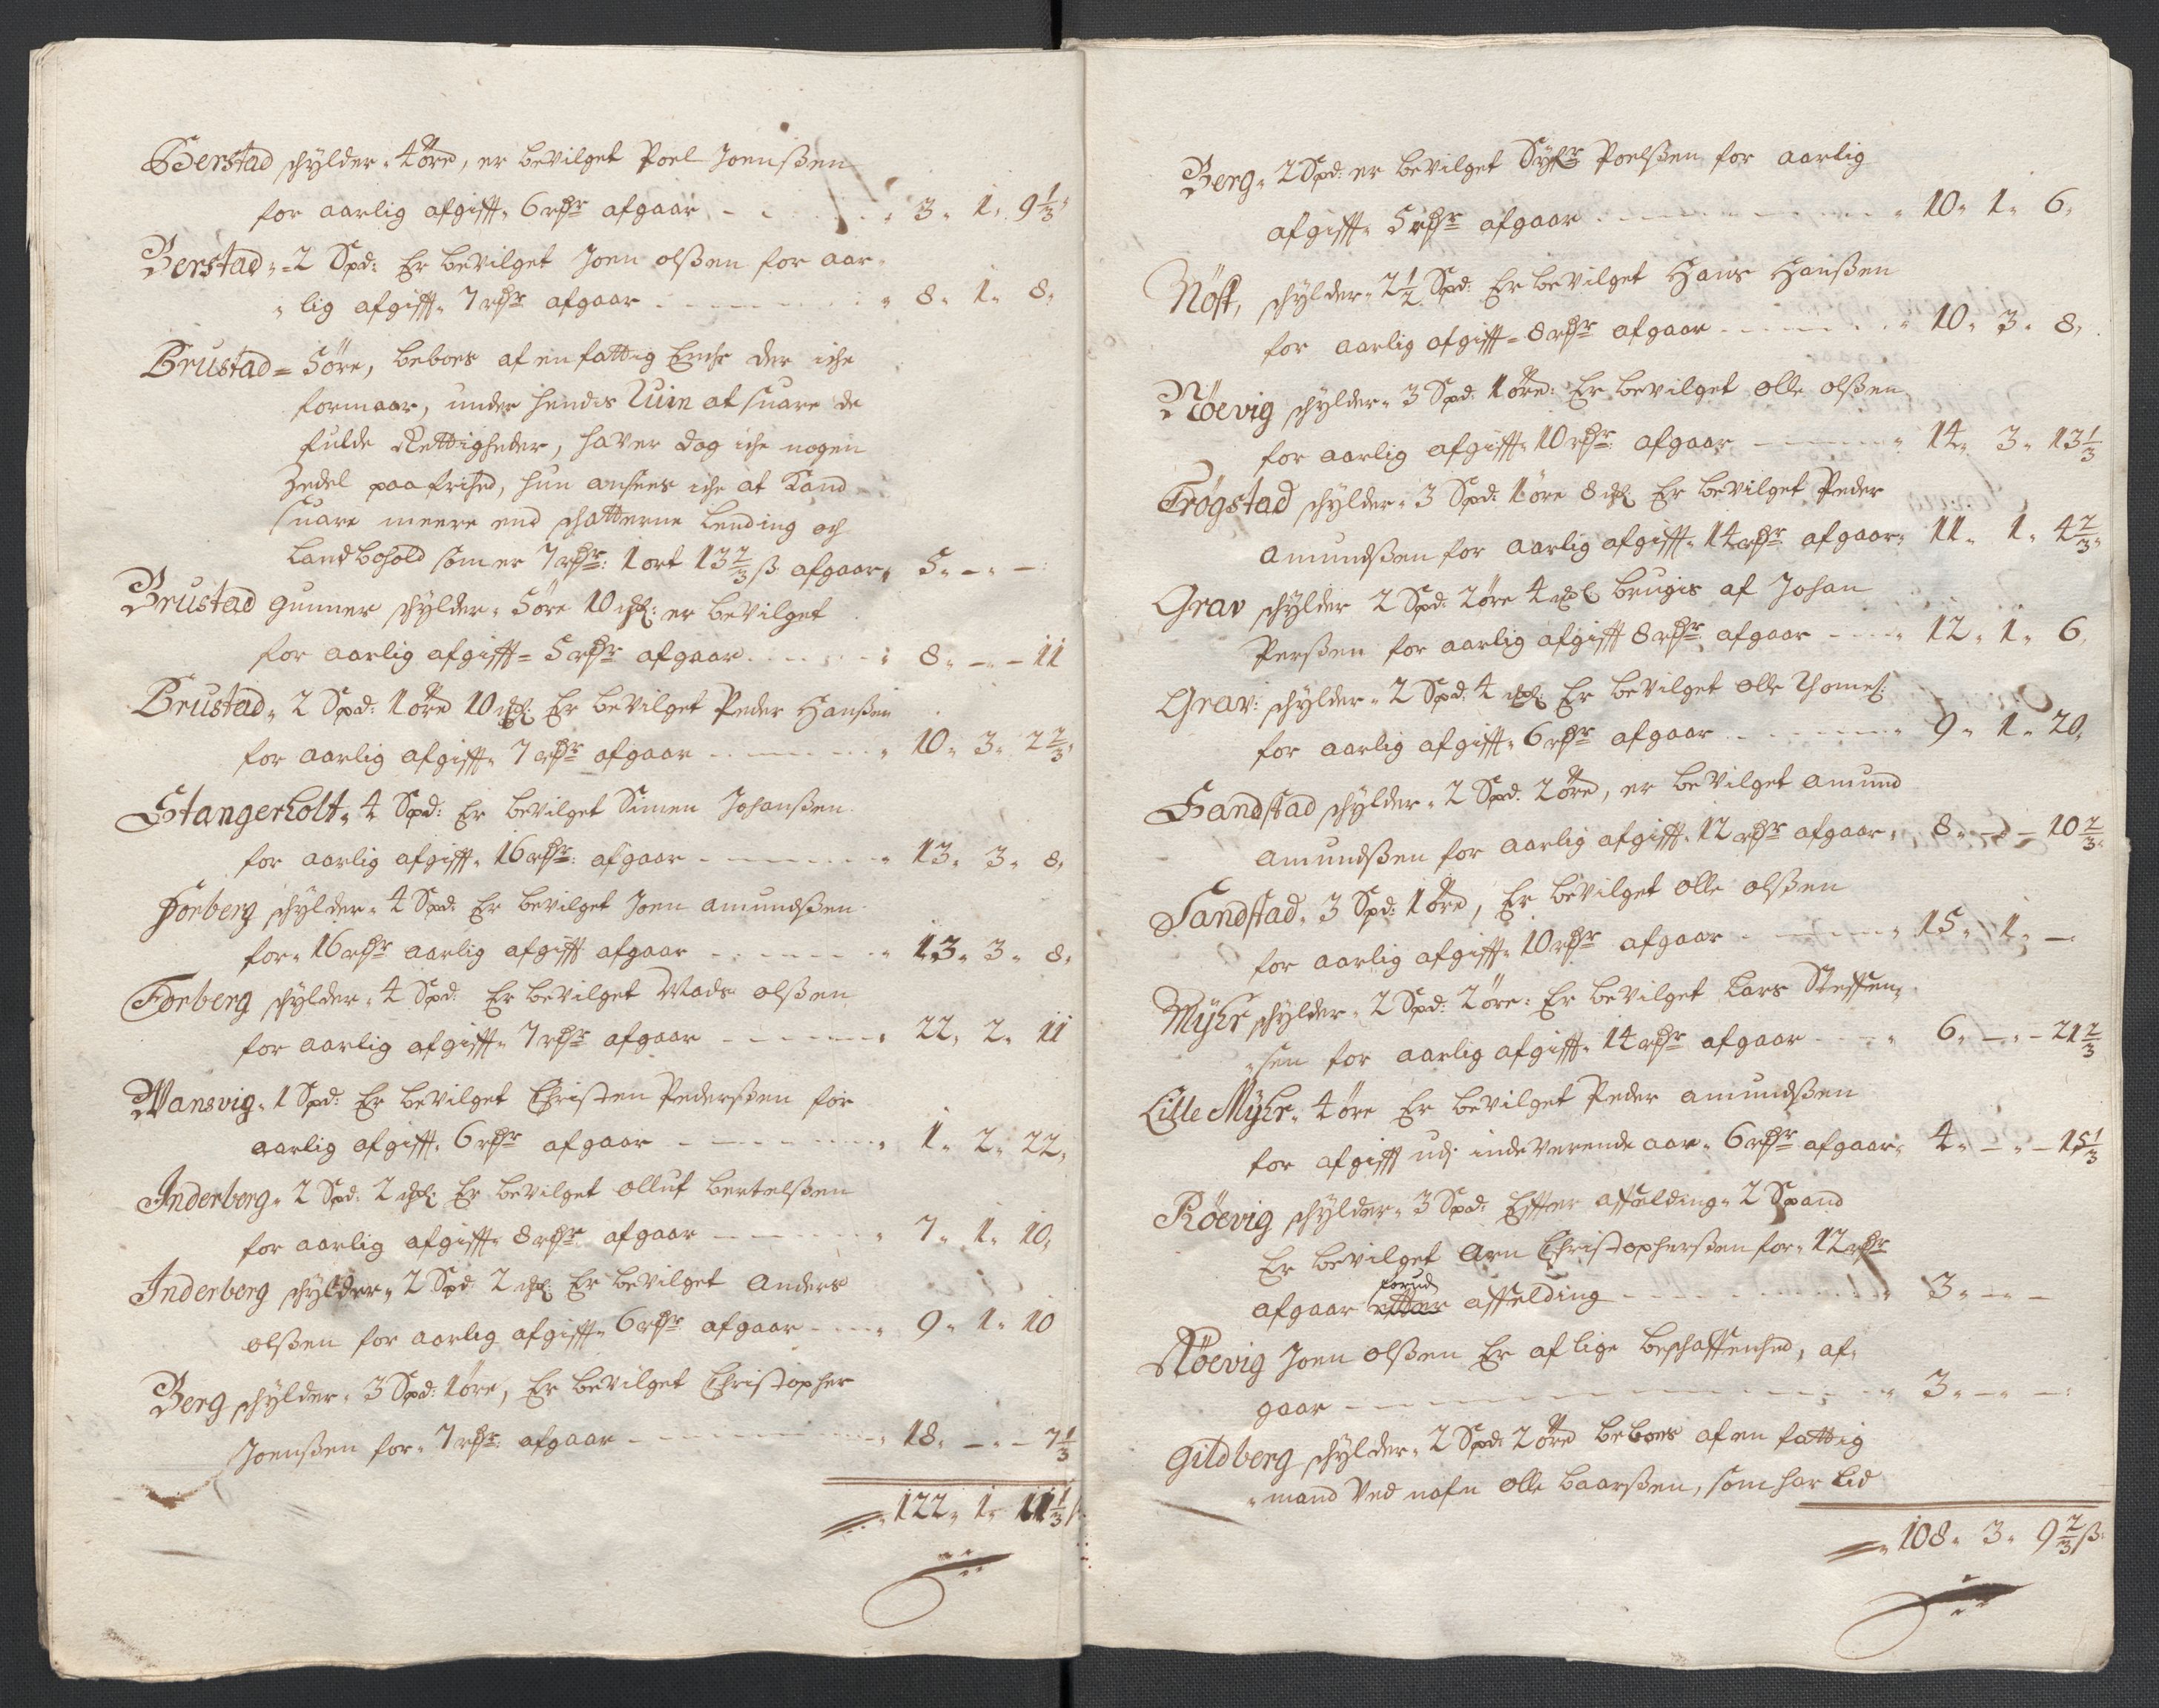 Berstad schylder 4 öre, er bevilget Poel Joenßen
for aarlig afgifft 6 rdr afgaar 3 1 9 1/3
Berstad 2 Spd: Er bevilget Joen olßen for aar
lig afgifft 7 rdr afgaar 8 1 8
Brustad 5 öre, beboes af en fattig Enche der iche
formaar, under hendis Ruin at suare de
fulde Rettigheder, haver dog iche nogen
Zedel paa frihed, hun ansees iche at Kand
suare meere end schatterne Leeding och
Landbohold som er 7 rdr: 1 ort 13 2/3 ß afgaar 5 - -
Brustad gunner schylder 5 öre 10 mkl: er bevilget
for aarlig afgifft 5 rdr afgaar 8 - 11
Brustad 2 Spd: 1 öre 10 mkl Er bevilget Peder Hanßen
for aarlig afgifft 7 rdr afgaar 10 3 2 2/3
Stangerholt 4 Spd: Er bevilget Simen Johanßen
for aarlig afgifft 16 rdr: afgaar 13 3 8
Forberg schylder 4 Spd: Er bevilget Joen amundßen
for 16 rdr aarlig afgifft afgaar 13 3 8
Forberg schylder 4 Spd: Er bevilget Mads olßen
for aarlig afgifft 7 rdr afgaar 22 2 11
Wansvig 1 Spd: Er bevilget Christen Pederßen for
aarlig afgifft 6 rdr afgaar 1 2 22
Inderberg 2 Spd: 2 mkl: Er bevilget olluf bertelßen
for aarlig afgifft 8 rdr afgaar 7 1 10
Inderberg schylder 2 Spd: 2 mkl: Er bevilget Anders
olßen for aarlig afgifft 6 rdr afgaar 9 1 10
Berg schylder 3 Spd: 1 öre, Er bevilget Christopher
Joenßen for 7 rdr: afgaar 18 - 7 1/3
122 1 11 1/3 ß
Berg 2 Spd: er bevilget Poelßen for aarlig
afgifft 5 rdr afgaar 10 1 6
Nöst, schylder 2 1/2 Spd: Er bevilget Hans Hanßen
for aarlig afgifft 8 rdr afgaar 10 3 8
Röevig schylder 3 Spd: 1 öre: Er bevilget olle olßen
for aarlig afgifft 10 rdr: afgaar 14 3 13 1/3
Trögstad schylder 3 Spd: 1 öre 8 mkl Er bevilget Peder
amundßen for aarlig afgifft 14 rdr afgaar 11 1 4 2/3
Grav schylder 2 Spd: 2 öre 4 mkl brugis af Johan
Perßen for aarlig afgifft 8 rdr afgaar 12 1 6
Grav: schylder 2 Spd: 4 mkl: Er bevilget olle Thomeß:
for aarlig afgifft 6 rdr afgaar 9 1 20
Sandstad schylder 2 Spd: 2 öre, er bevilget amund
amundßen for aarlig afgifft 12 rdr afgaar 8 - 10 2/3
Sandstad 3 Spd: 1 öre, Er bevilget olle olßen
for aarlig afgifft 10 rdr afgaar 15 1 -
Myhr schylder 2 Spd: 2 öre: Er bevilget Lars Steffen
sen for aarlig afgifft 14 rdr afgaar 6 - 21 2/3
Lille Myhr 4 öre Er bevilget Peder amundßen
for afgifft udj indeverende aar 6 rdr afgaar 4 - 15 1/3
Röevig schylder 3 Spd: Effter affelding 2 Spand
Er bevilget Arn Christopherßen for 12 rdr
forud
afgaar effter affelding 3 - -
Röevig Joen olßen Er af lige beschaffenhed, af
gaar 3 - -
Gildberg schylder 2 Spd: 2 öre beboes af en fattig
mand ved nafn olle baarßen, som har Lid
108 3 9 2/3 ß